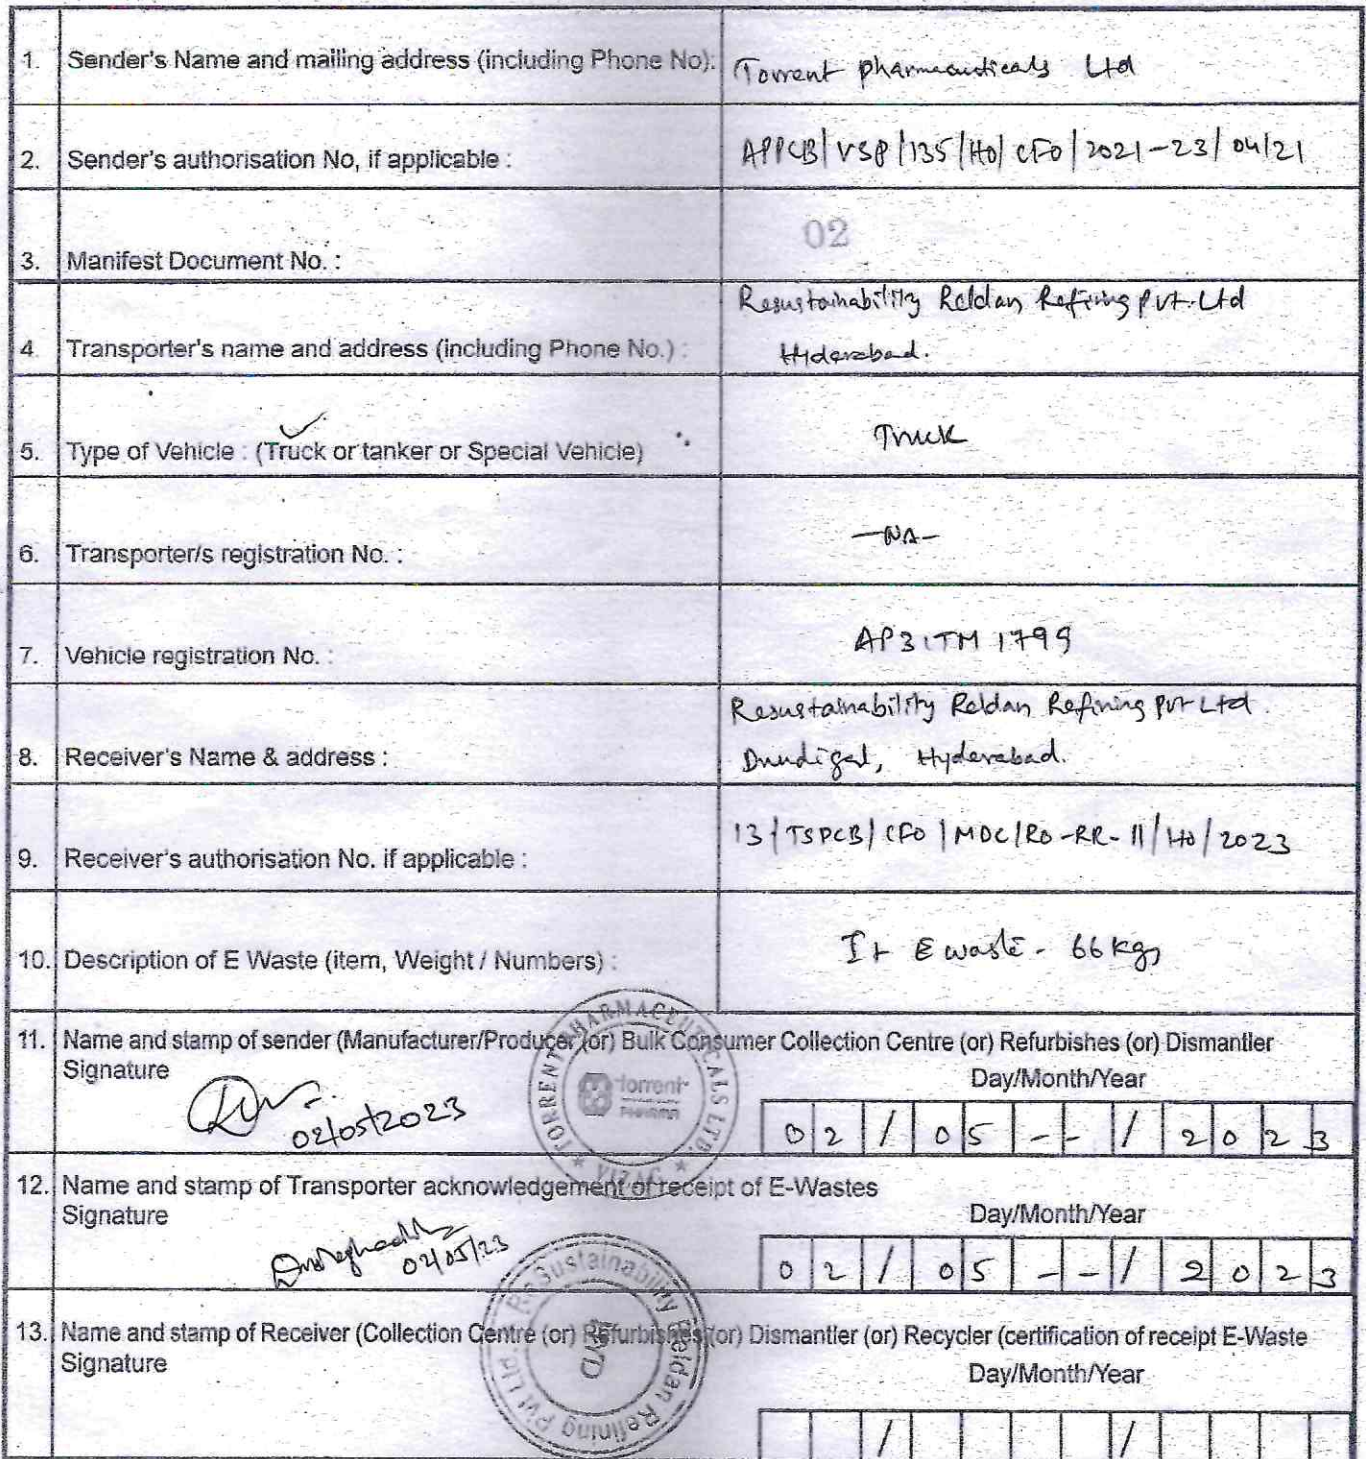 1. Sender's Name and mailing address (including Phone No): Torrent pharmaceuticals Ltd
2. Sender's authorisation No, if applicable : APPCB/VSP/135/HO/CFO/2021-23/04/21
3. Manifest Document No. : 02
4. Transporter's name and address (including Phone No.) : Resustainability Reldan Refining Pvt. Ltd
Hyderabad.
5. Type of Vehicle : (Truck or tanker or Special Vehicle) Truck
6. Transporter/s registration No. : -NA-
7. Vehicle registration No. : AP31TM 1799
8. Receiver's Name & address : Resustainability Reldan Refining Pvt Ltd.
Dundigal, Hyderabad.
9. Receiver's authorisation No. if applicable : 13/TSPCB/CFO/MDC/RO-RR-II/HO/2023
10. Description of E Waste (item, Weight / Numbers) : It E waste - 66 kgs
11. Name and stamp of sender (Manufacturer/Producer (or) Bulk Consumer Collection Centre (or) Refurbishes (or) Dismantler
Signature Day/Month/Year
02/05/2023 02/05--/2023
TORRENT PHARMACEUTICALS LTD. * VIZAG *
torrent
PHARMA
12. Name and stamp of Transporter acknowledgement of receipt of E-Wastes
Signature Day/Month/Year
02/05/23 02/05--/2023
Re Sustainability Reldan Refining Pvt Ltd.
HYD
13. Name and stamp of Receiver (Collection Centre (or) Refurbishes (or) Dismantler (or) Recycler (certification of receipt E-Waste
Signature Day/Month/Year
/ /